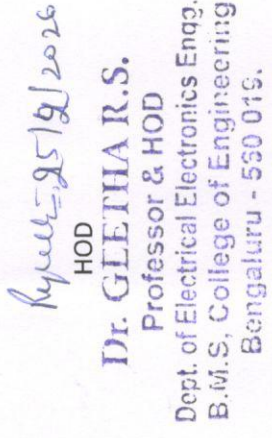 25/2/2026
HOD
Dr. GEETHA R.S.
Professor & HOD
Dept. of Electrical Electronics Engg.
B.M.S, College of Engineering
Bengaluru - 560 019.